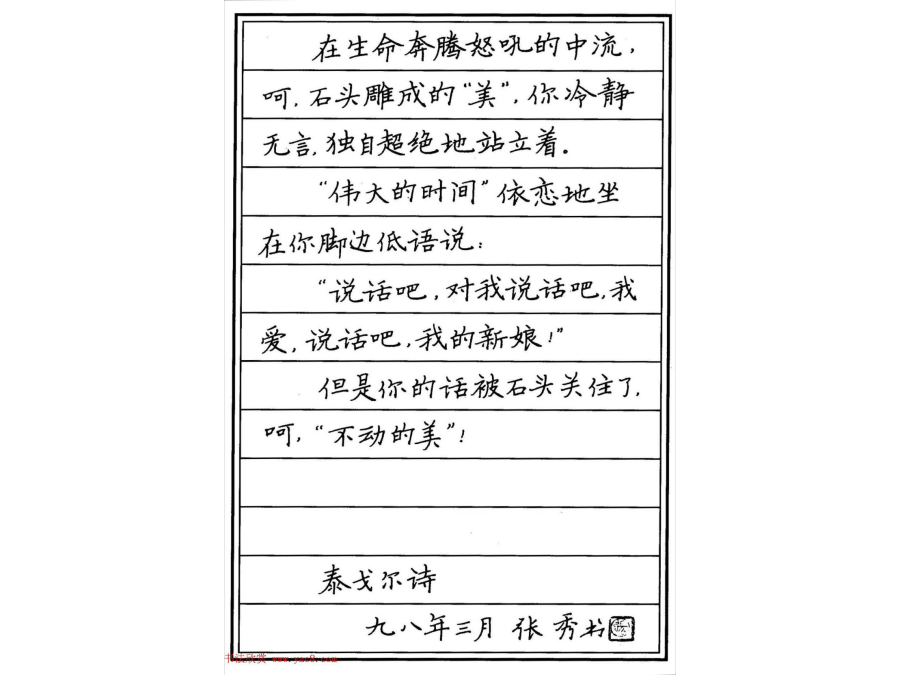 在生命奔腾怒吼的中流，
呵，石头雕成的“美”，你冷静
无言，独自超绝地站立着。
“伟大的时间”依恋地坐
在你脚边低语说：
“说话吧，对我说话吧，我
爱，说话吧，我的新娘！”
但是你的话被石头关住了，
呵，“不动的美”！
泰戈尔诗
九八年三月 张秀书
书法欣赏 www.yac8.com